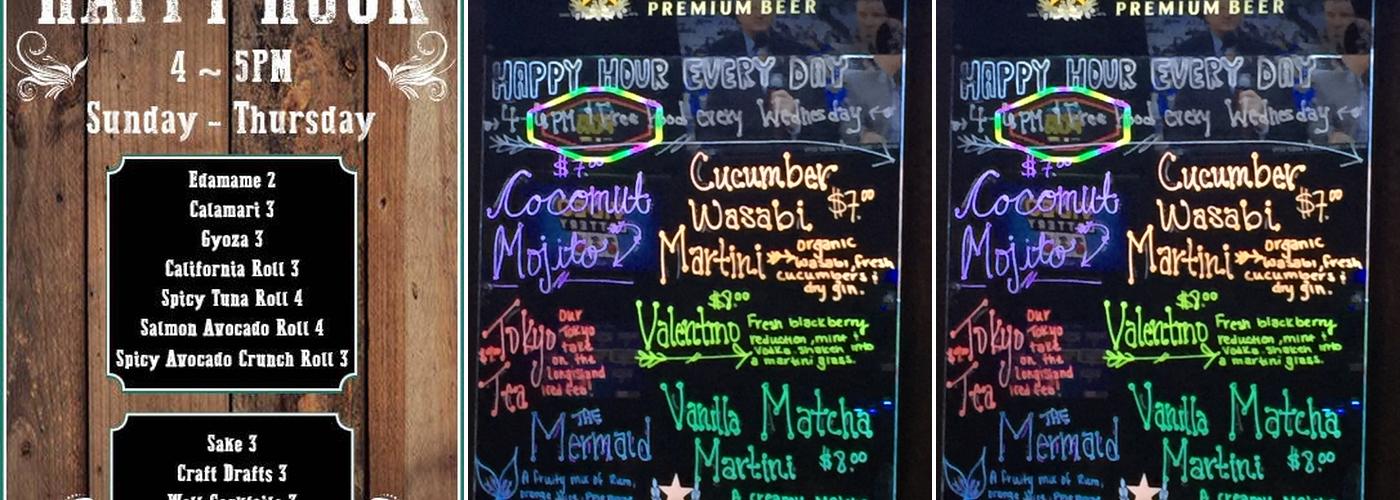 HAPPY HOUR
4 ~ 5PM
Sunday - Thursday
Edamame 2
Calamari 3
Gyoza 3
California Roll 3
Spicy Tuna Roll 4
Salmon Avocado Roll 4
Spicy Avocado Crunch Roll 3
Sake 3
Craft Drafts 3
PREMIUM BEER
HAPPY HOUR EVERY DAY
4-6PM Free Food every Wednesday
$7.00
Coconut
Mojito
Cucumber
Wasabi $7.00
Martini
organic
wasabi, fresh
cucumbers &
dry gin.
Tokyo
Tea
Our
Tokyo
take
on the
Longisland
iced tea!
$8.00
Valentino
Fresh blackberry
reduction, mint &
Vodka shaken into
a martini glass.
THE
Mermaid
A fruity mix of Rum,
Vanilla Matcha
Martini $8.00
A creamy Matcha
PREMIUM BEER
HAPPY HOUR EVERY DAY
4-6PM Free Food every Wednesday
$7.00
Coconut
Mojito
Cucumber
Wasabi $7.00
Martini
organic
wasabi, fresh
cucumbers &
dry gin.
Tokyo
Tea
Our
Tokyo
take
on the
Longisland
iced tea!
$8.00
Valentino
Fresh blackberry
reduction, mint &
Vodka shaken into
a martini glass.
THE
Mermaid
A fruity mix of Rum,
Vanilla Matcha
Martini $8.00
A creamy Matcha